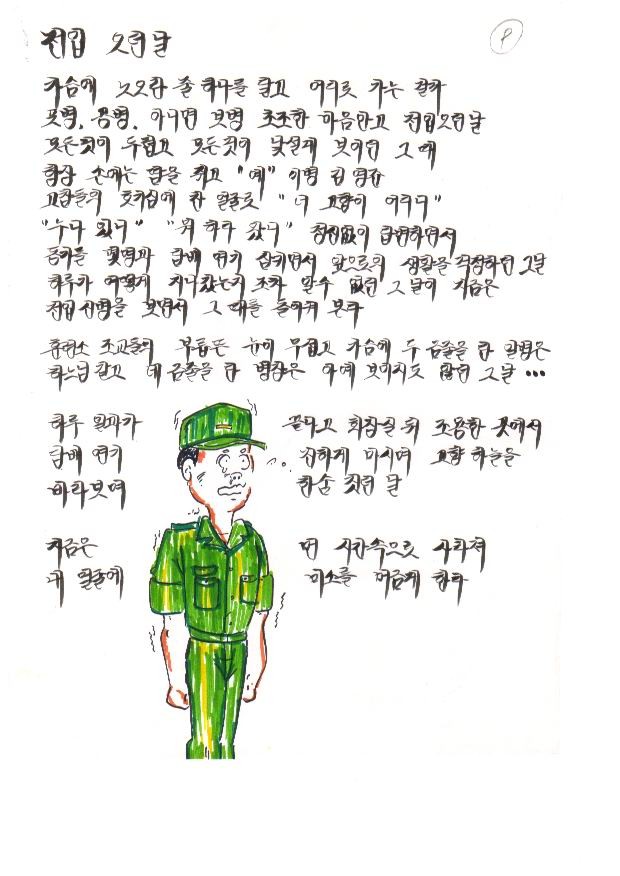 전입 오던날
가슴에 노오란 줄 하나를 달고 어디로 가는 걸까
포병, 공병, 아니면 보병 초조한 마음안고 전입오던날
모든것이 두렵고 모든것이 낯설게 보이던 그 때
항상 손에는 땀을 쥐고 "예" 이병 김 병장
고참들의 호기심에 찬 얼굴로 "너 고향이 어디니"
"누나 있니" "뭐 하다 왔니" 정신없이 답변하면서
동기들 몇명과 담배 연기 삼키면서 앞으로의 생활을 걱정하던 그날
하루가 어떻게 지나갔는지 조차 알수 없던 그날이 지금은
전입신병을 보면서 그 때를 돌이켜 본다
훈련소 조교들의 부릅뜬 눈이 무섭고 가슴에 두 금줄을 단 일병은
하느님 같고 네 금줄을 단 병장은 아예 보이지도 않던 그날 •••
하루 일과가 끝나고 화장실 뒤 조용한 곳에서
담배 연기 진하게 마시며 고향 하늘을
바라보며 한숨 짓던 날
지금은 먼 시간속으로 사라져
내 얼굴에 미소를 머금게 한다